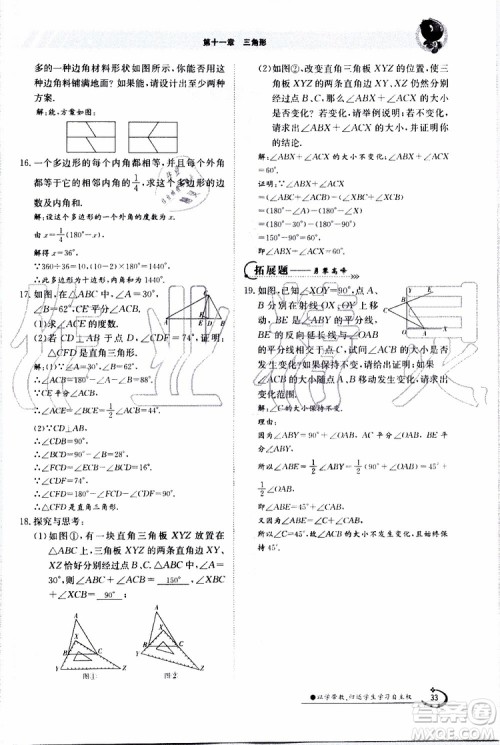 第十一章 三角形
多的一种边角材料形状如图所示,你能否用这些边
角材料铺满地面?如果能,请设计至少两种不同的
方案.
解:能,方案如图:
16. 一个多边形的每个内角都相等,并且它的一个外角
等于它的相邻内角的1/4,求这个多边形的边数
及内角和.
解:设这个多边形的一个外角的度数为x°,
由x=1/4(180-x),解得x=36°,
∵360÷36=10,180°×(10-2)=1440°,
∴这个多边形为十边形,内角和为1440°.
17. 如图,在△ABC中,∠A=30°,
∠B=62°,CE平分∠ACB.
(1)求∠ACE的度数;
(2)若CD⊥AB于点D,∠CDF=74°,证明:
△CFD是直角三角形.
解:(1)∵∠A=30°,∠B=62°,
∴∠ACB=88°.
∵CE平分∠ACB,
∴∠ACE=∠BCE=44°.
(2)∵CD⊥AB,
∴∠CDB=90°,
∴∠BCD=90°-∠B=28°,
∴∠FCD=∠ECB-∠BCD=16°.
∵∠CDF=74°,
∴∠CFD=90°,
∴△CFD是直角三角形.
18. 探究与思考:
(1)如图①,有一块直角三角板XYZ放置在
△ABC上,三角板XYZ的两条直角边XY,
XZ恰好分别经过点B,点C.若∠A=30°,
则∠ABC+∠ACB= 150° ,∠XBC+
∠XCB= 90° ;
图① 图②
(2)如图②,改变直角三角板XYZ的位置,使三
角板XYZ的两条直角边XY,XZ仍然分别
经过点B,点C,那么∠ABX+∠ACX的大
小是否变化?若变化,请举例说明;若不变
化,请证明∠ABX+∠ACX的大小.
解:∠ABX+∠ACX的大小不变化;
证明:∵∠ABX+∠ACX
=(∠ABC-∠XBC)+(∠ACB-∠XCB)
=(180°-∠A)-(180°-∠X)
=(180°-30°)-(180°-90°)
=60°,
即∠ABX+∠ACX的大小不变化.
拓展题——勇攀高峰
19. 如图,已知∠XOY=90°,点A,B
分别在射线OX,OY上移动,
BE是∠ABY的平分线,
BE的反向延长线与∠OAB
的平分线相交于点C,试问∠ACB的大小是否
发生变化?如果保持不变,请说明理由;如果
∠ACB的大小随点A,B移动发生变化,请求出
变化范围.
解:∠ACB的大小保持不变.
∵∠ABY=90°+∠OAB,
AC平分∠OAB,BE平分∠ABY,
∴∠ABE=1/2∠ABY=1/2(90°+∠OAB)=45°+
1/2∠OAB,
即∠ABE=45°+∠CAB.
又∵∠ABE=∠ACB+∠CAB,
∴∠ACB=45°,
故∠ACB的大小不发生变化,且始终保持45°.
以学带教,归还学生学习自主权
33